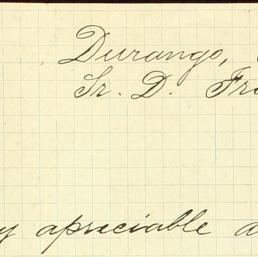 Durango,
Sr. D. Fra
y apreciable a